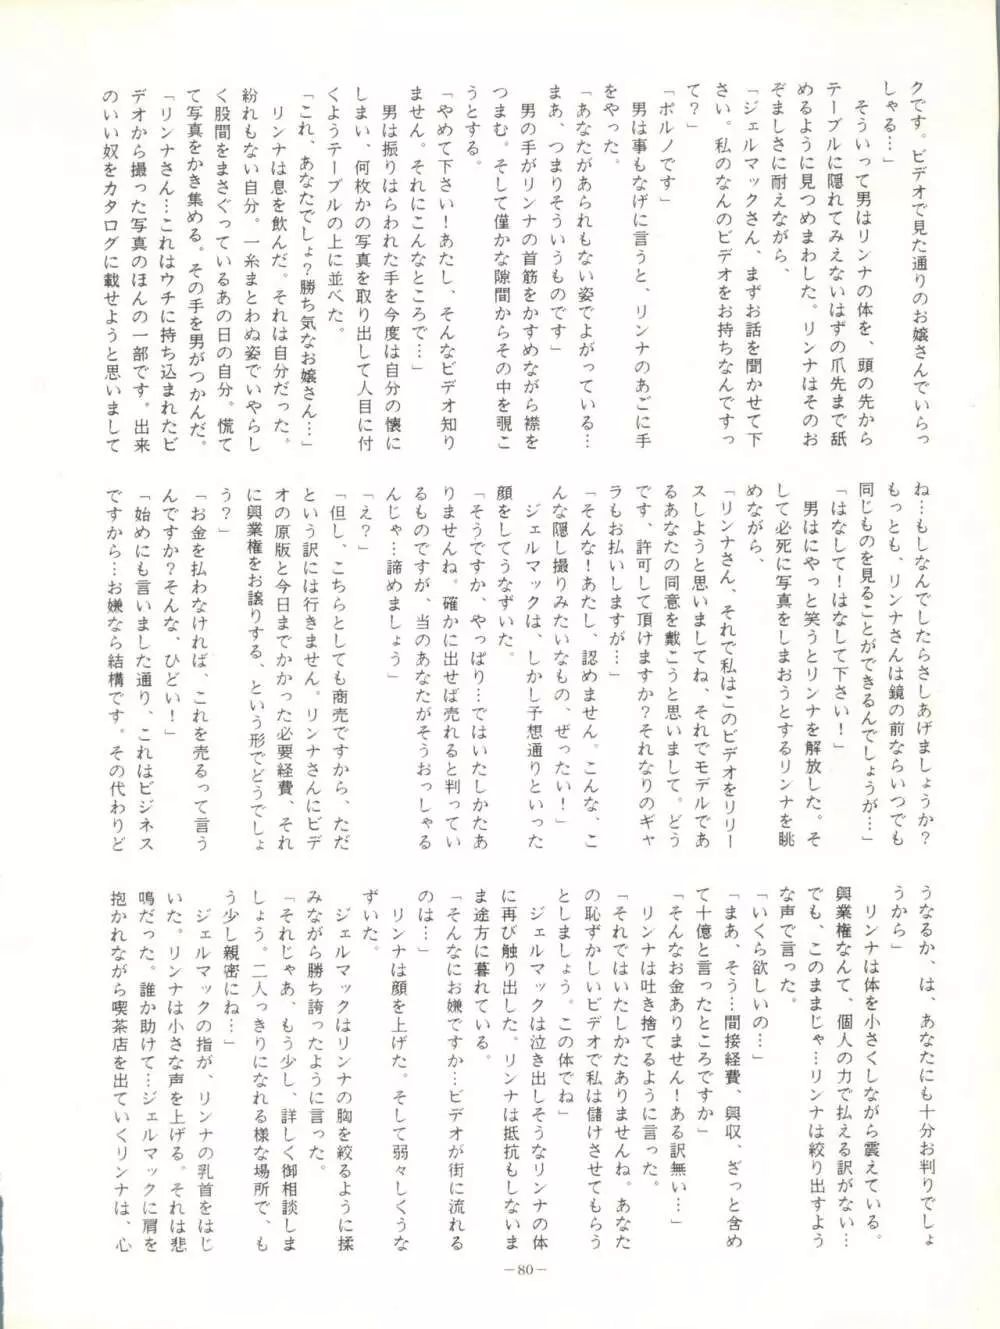 クです。ビデオで見た通りのお嬢さんでいらっ
しゃる…」
そういって男はリンナの体を、頭の先から
テーブルに隠れてみえないはずの爪先まで舐
めるように見つめまわした。リンナはそのお
ぞましさに耐えながら、
「ジェルマックさん、まずお話を聞かせて下
さい。私のなんのビデオをお持ちなんですっ
て?」
「ポルノです」
男は事もなげに言うと、リンナのあごに手
をやった。
「あなたがあられもない姿でよがっている…
まあ、つまりそういうものです」
男の手がリンナの首筋をかすめながら襟を
つまむ。そして僅かな隙間からその中を覗こ
うとする。
「やめて下さい!あたし、そんなビデオ知り
ません。それにこんなところで…」
男は振りはらわれた手を今度は自分の懐に
しまい、何枚かの写真を取り出して人目に付
くようテーブルの上に並べた。
「これ、あなたでしょ?勝ち気なお嬢さん…」
リンナは息を飲んだ。それは自分だった。
紛れもない自分。一糸まとわぬ姿でいやらし
く股間をまさぐっているあの日の自分。慌て
て写真をかき集める。その手を男がつかんだ。
「リンナさん…これはウチに持ち込まれたビ
デオから撮った写真のほんの一部です。出来
のいい奴をカタログに載せようと思いまして
ね…もしなんでしたらさしあげましょうか?
もっとも、リンナさんは鏡の前ならいつでも
同じものを見ることができるんでしょうが…」
「はなして!はなして下さい!」
男はにやっと笑うとリンナを解放した。そ
して必死に写真をしまおうとするリンナを眺
めながら、
「リンナさん、それで私はこのビデオをリリー
スしようと思いましてね、それでモデルであ
るあなたの同意を戴こうと思いまして。どう
です、許可して頂けますか?それなりのギャ
ラもお払いしますが…」
「そんな!あたし、認めません。こんな、こ
んな隠し撮りみたいなもの、ぜったい!」
ジェルマックは、しかし予想通りといった
顔をしてうなずいた。
「そうですか、やっぱり…ではいたしかたあ
りませんね。確かに出せば売れると判ってい
るものですが、当のあなたがそうおっしゃる
んじゃ…諦めましょう」
「え?」
「但し、こちらとしても商売ですから、ただ
という訳には行きません。リンナさんにビデ
オの原版と今日までかかった必要経費、それ
に興業権をお譲りする、という形でどうでしょ
う?」
「お金を払わなければ、これを売るって言う
んですか?そんな、ひどい!」
「始めにも言いました通り、これはビジネス
ですから…お嫌なら結構です。その代わりど
うなるか、は、あなたにも十分お判りでしょ
うから」
リンナは体を小さくしながら震えている。
興業権なんて、個人の力で払える訳がない…
でも、このままじゃ…リンナは絞り出すよう
な声で言った。
「いくら欲しいの…」
「まあ、そう…間接経費、興収、ざっと含め
て十億と言ったところですか」
「そんなお金ありません!ある訳無い…」
リンナは吐き捨てるように言った。
「それではいたしかたありませんね。あなた
の恥ずかしいビデオで私は儲けさせてもらう
としましょう。この体でね」
ジェルマックは泣き出しそうなリンナの体
に再び触り出した。リンナは抵抗もしないま
ま途方に暮れている。
「そんなにお嫌ですか…ビデオが街に流れる
のは…」
リンナは顔を上げた。そして弱々しくうな
ずいた。
ジェルマックはリンナの胸を絞るように揉
みながら勝ち誇ったように言った。
「それじゃあ、もう少し、詳しく御相談しま
しょう。二人っきりになれる様な場所で、も
う少し親密にね…」
ジェルマックの指が、リンナの乳首をはじ
いた。リンナは小さな声を上げる。それは悲
鳴だった。誰か助けて…ジェルマックに肩を
抱かれながら喫茶店を出ていくリンナは、心
—80—